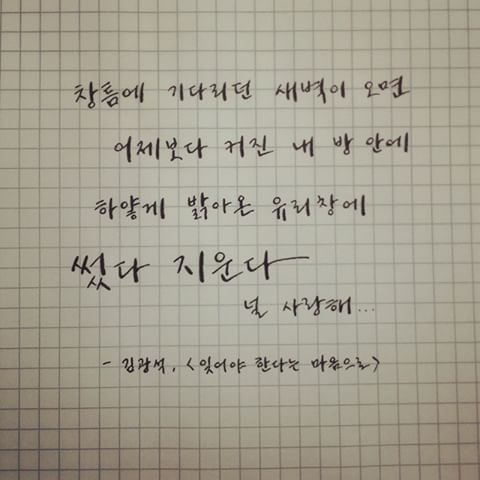 창틈에 기다리던 새벽이 오면
어제보다 커진 내 방 안에
하얗게 밝아온 유리창에
썼다 지운다
널 사랑해...
- 김광석, <잊어야 한다는 마음으로>